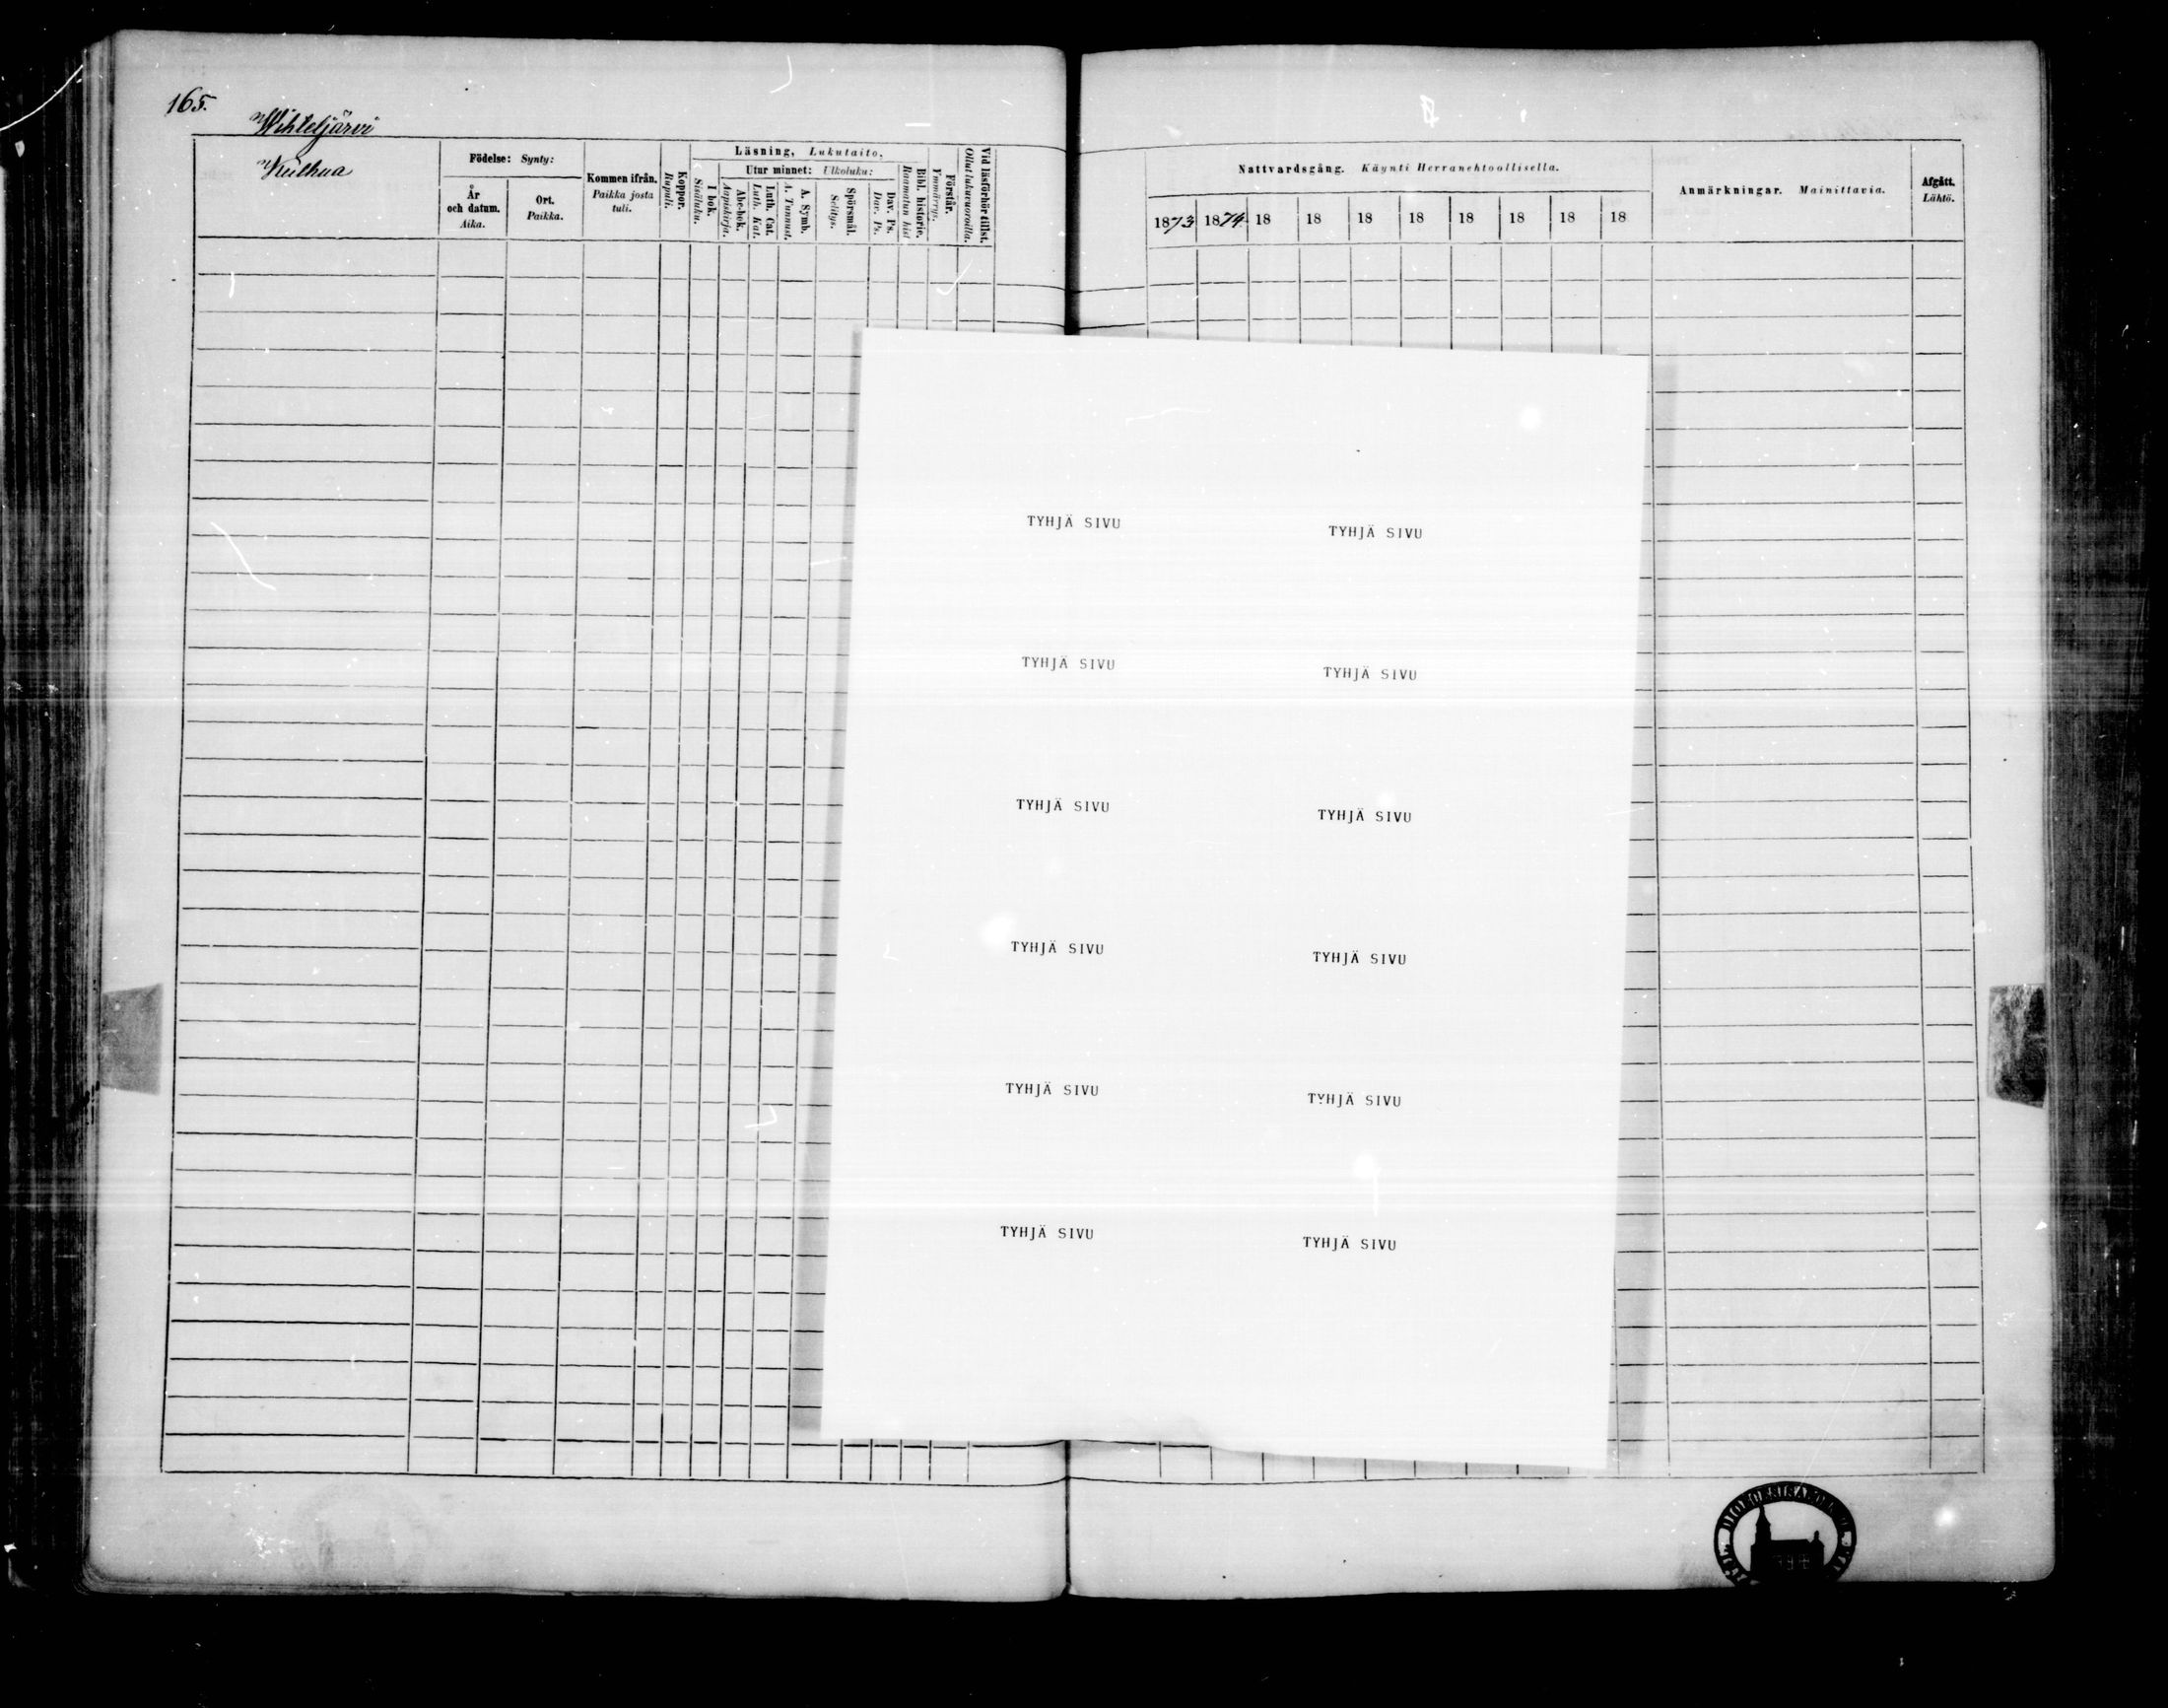 165.
Wihteljärvi
Födelse: Synty:
År och datum. Aika.
Ort. Paikka.
Kommen ifrån. Paikka josta tuli.
Koppor. Rupuli.
Läsning, Lukutaito,
I bok. Sisäluku.
Utur minnet: Ulkoluku:
Abc-bok. Aapiskirja.
Luth. Cat. Luth. Kat.
A. Symb. A. Tunnust.
Spörsmål. Selitys.
Dav. Ps. Dav. Ps.
Bibl. historie. Raamatun hist
Förstår. Ymmärrys.
Vid läsförhör tillst. Ollut lukuvuoroilla.
Nattvardsgång. Käynti Herranehtoollisella.
1873 1874. 18 18 18 18 18 18 18 18
Anmärkningar. Mainittavia.
Afgått. Lähtö.
TYHJÄ SIVU TYHJÄ SIVU
TYHJÄ SIVU TYHJÄ SIVU
TYHJÄ SIVU TYHJÄ SIVU
TYHJÄ SIVU TYHJÄ SIVU
TYHJÄ SIVU TYHJÄ SIVU
TYHJÄ SIVU TYHJÄ SIVU